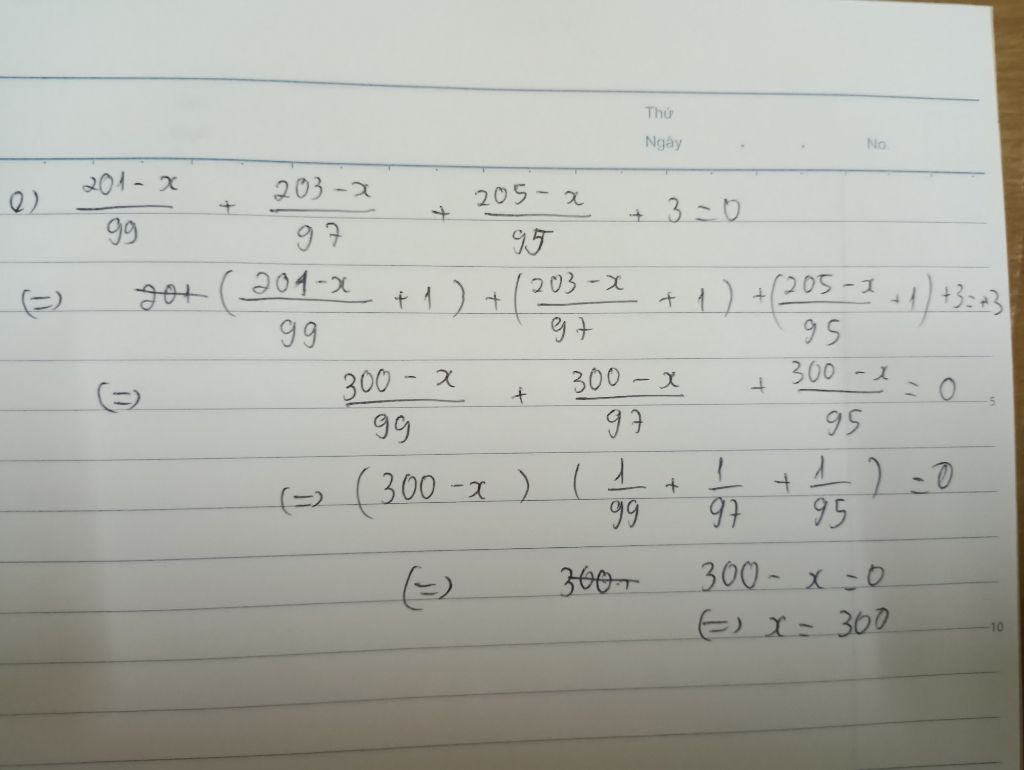 Thứ
Ngày . . No.
e) (201 - x)/99 + (203 - x)/97 + (205 - x)/95 + 3 = 0
(=) (201 - x)/99 + 1) + ((203 - x)/97 + 1) + ((205 - x)/95 + 1) + 3 = +3
(=) (300 - x)/99 + (300 - x)/97 + (300 - x)/95 = 0
5
(=) (300 - x) (1/99 + 1/97 + 1/95) = 0
(=) 300 - x = 0
(=) x = 300
10